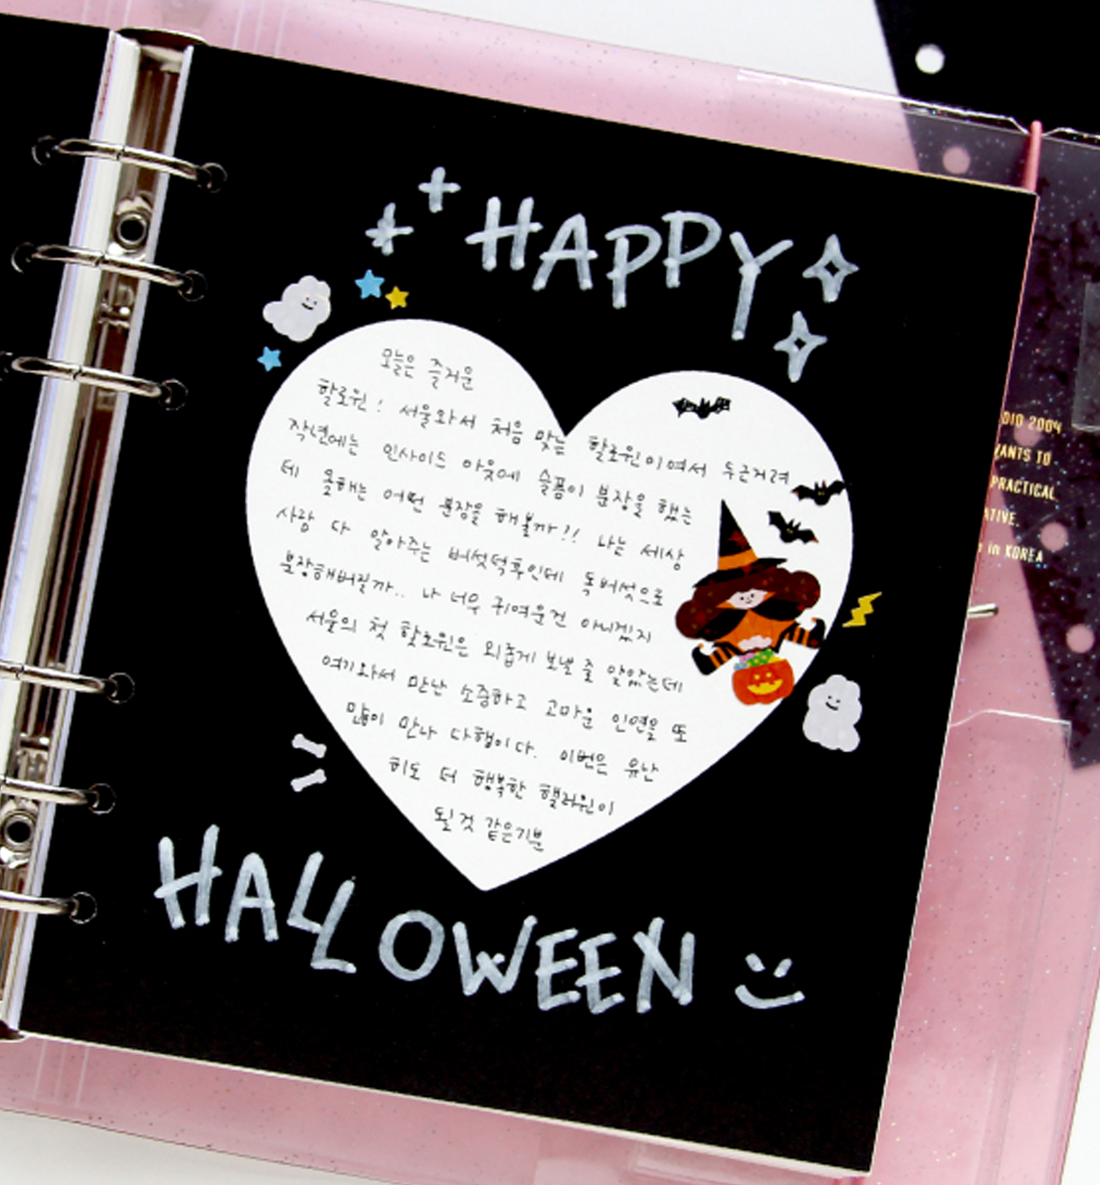 HAPPY
오늘은 즐거운
할로윈! 서울와서 처음 맞는 할로윈이여서 두근거려
작년에는 인사이드 아웃에 슬픔이 분장을 했는
데 올해는 어떤 분장을 해볼까?! 나는 세상
사람 다 알아주는 버섯덕후인데 독버섯으로
분장해버릴까.. 나 너무 귀여운건 아니겠지
서울의 첫 할로윈은 외롭게 보낼 줄 알았는데
여기와서 만난 소중하고 고마운 인연을 또
많이 만나 다행이다. 이번은 유난
히도 더 행복한 핼러윈이
될것 같은기분
HALLOWEEN
DIO 2004
WANTS TO
PRACTICAL
ATIVE.
in KOREA